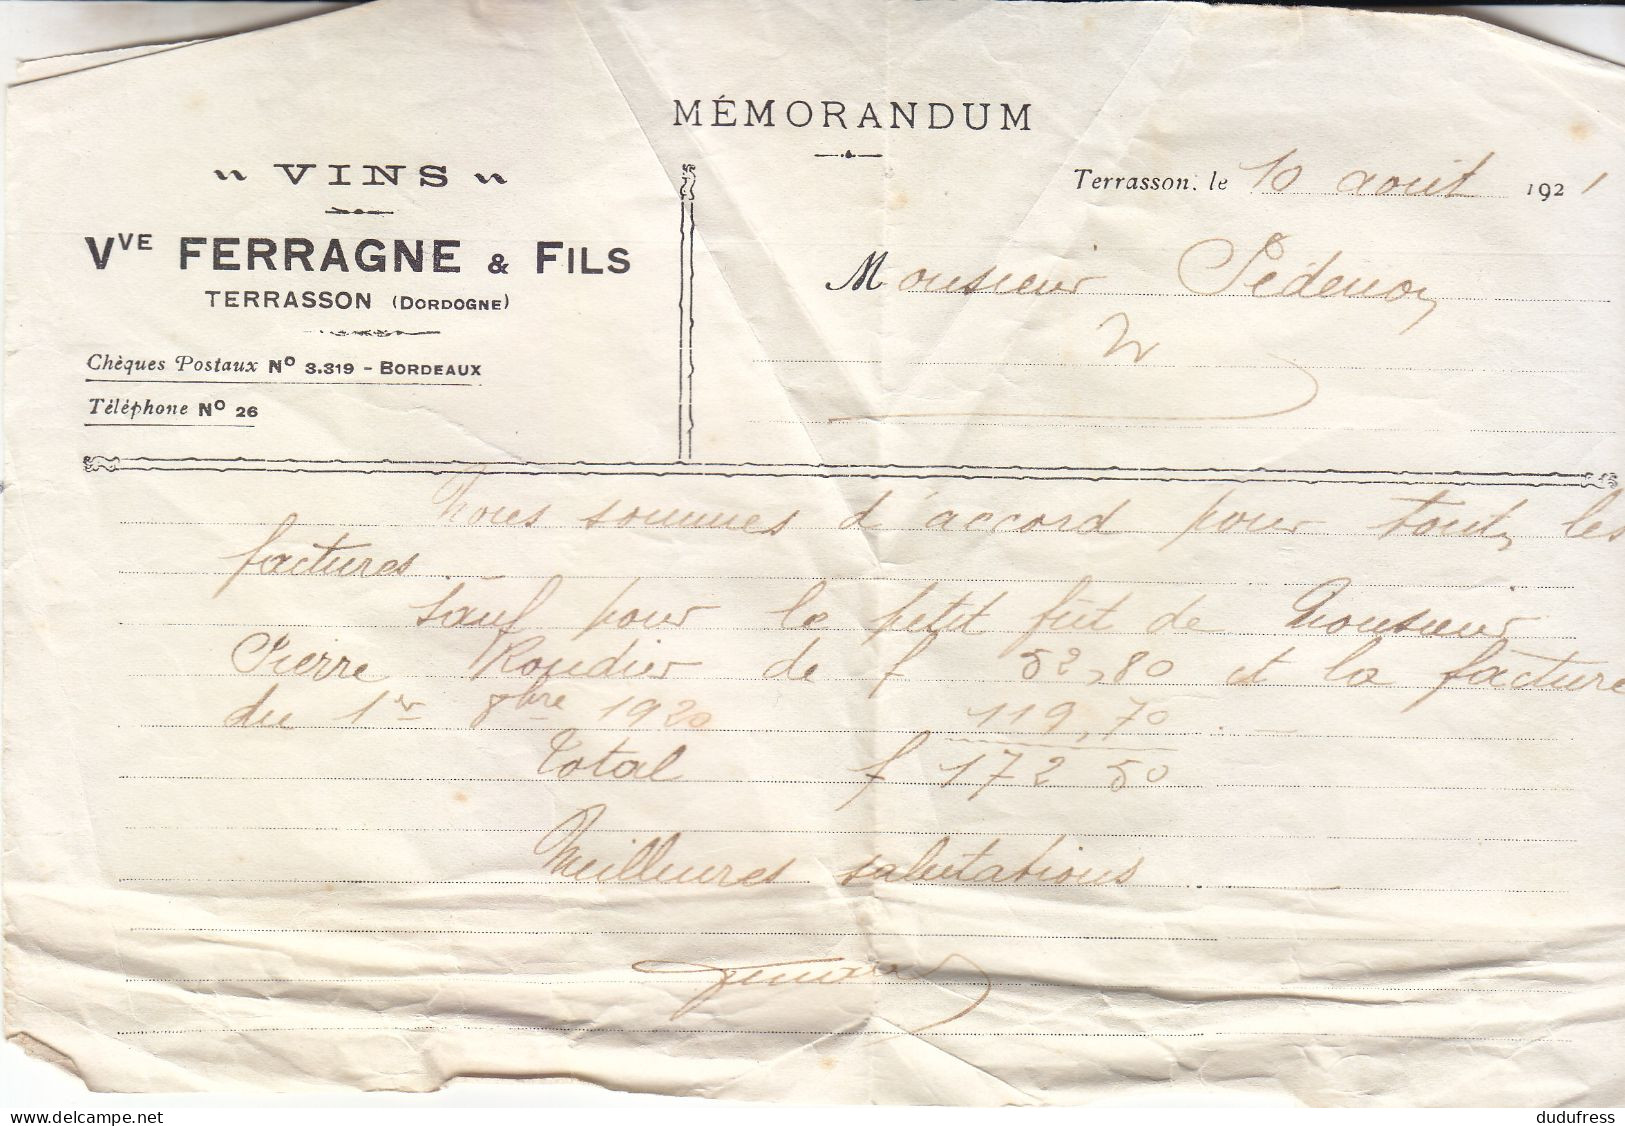 MÉMORANDUM
VINS
Vve FERRAGNE & FILS
TERRASSON (DORDOGNE)
Chèques Postaux No 3.319 - BORDEAUX
Téléphone No 26
Terrasson, le 10 août 1921
Monsieur
Nous sommes d'accord pour tout les
factures
sauf pour le petit fût de Monsieur
Pierre Roudier de f 52,80 et la facture
du 1er 8bre 1920 119,70
Total f 172 50
Meilleures salutations
delcampe.net
dudufress